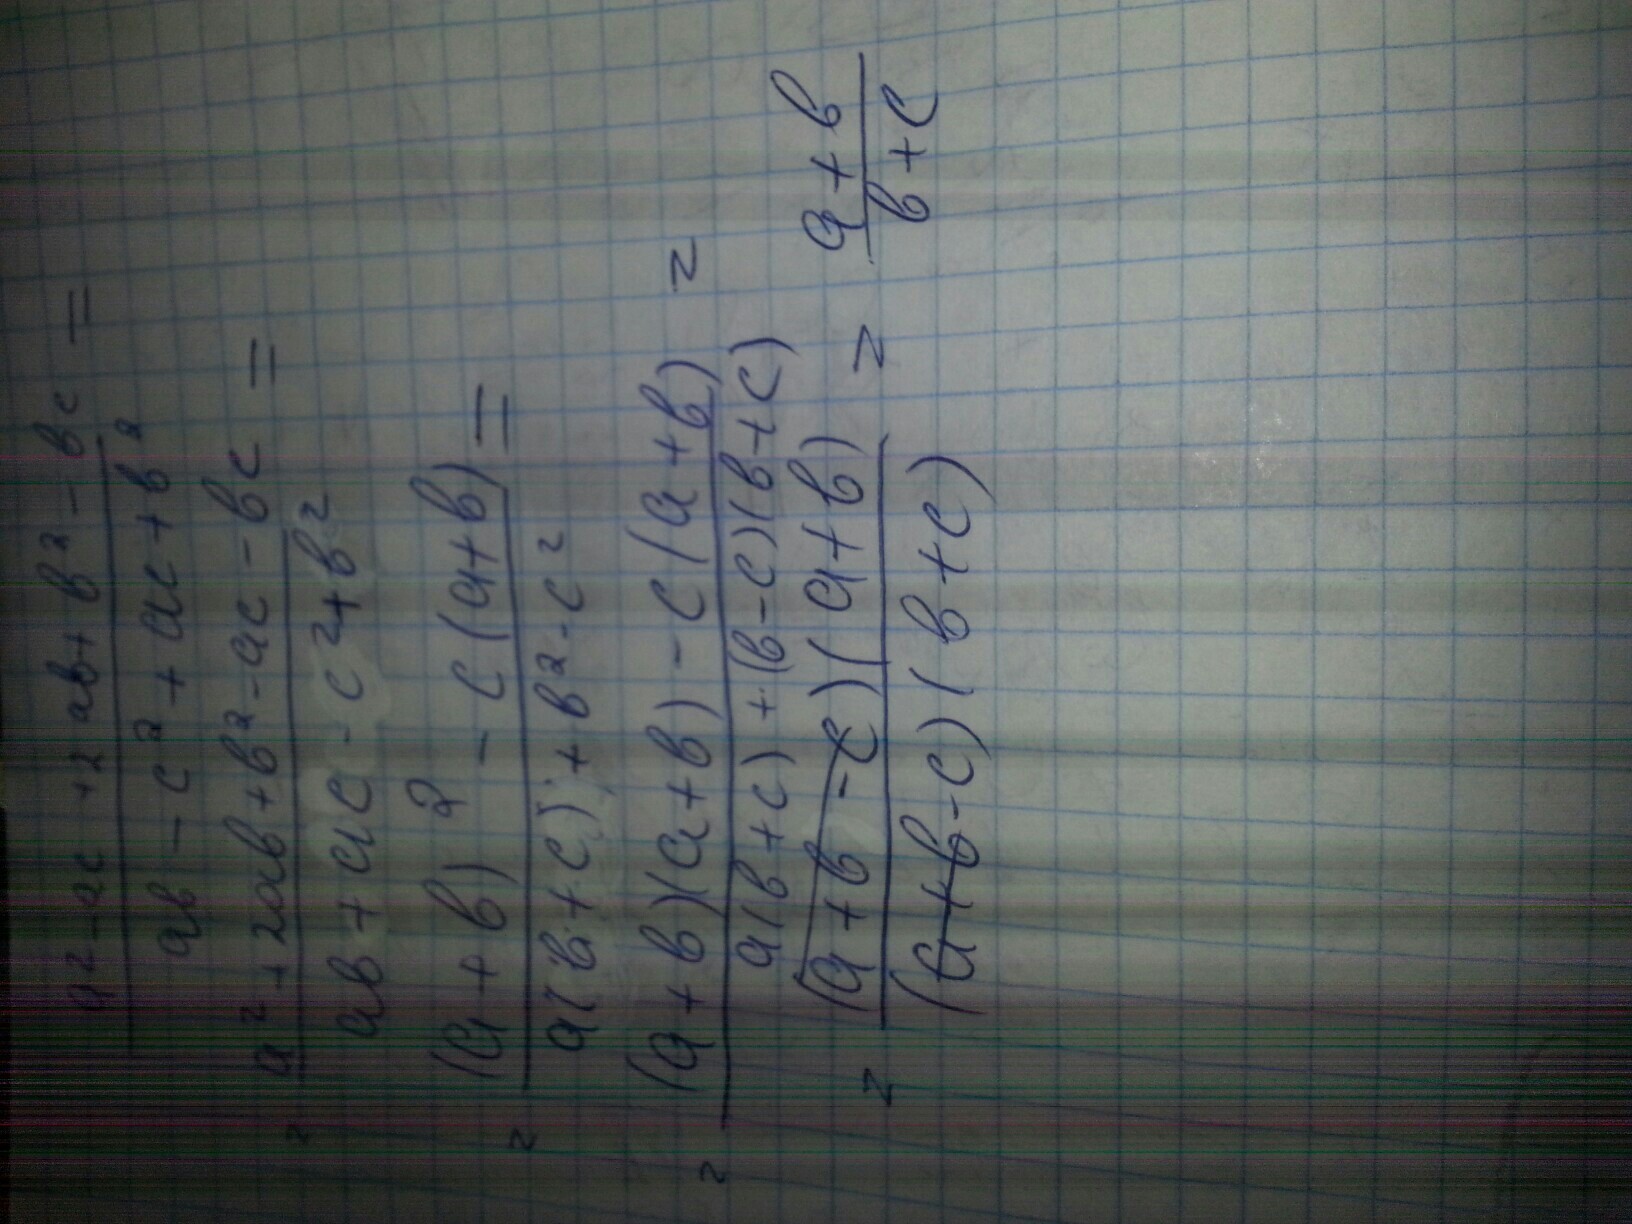 a² - ac + 2ab + b² - bc =
ab - c² + ac + b²
= a² + 2ab + b² - ac - bc =
ab + ac - c² + b²
= (a + b)² - c(a + b) =
a(b + c) + b² - c²
= (a + b)(a + b) - c(a + b) =
a(b + c) + (b - c)(b + c)
= (a + b - c)(a + b) = a + b
(a + b - c)(b + c) b + c